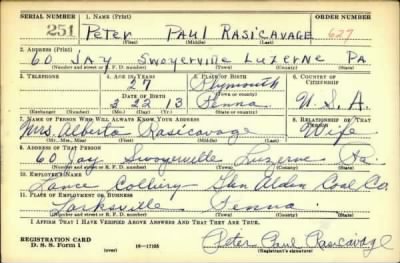 SERIAL NUMBER 1. NAME (Print) ORDER NUMBER
251 PETER PAUL RASICAVAGE 627
(First) (Middle) (Last)
2. ADDRESS (Print)
60 JAY SWOYERVILLE LUZERNE PA
(Number and street or R. F. D. number) (Town) (County) (State)
3. TELEPHONE 4. AGE IN YEARS 5. PLACE OF BIRTH 6. COUNTRY OF CITIZENSHIP
27 Plymouth
DATE OF BIRTH (Town or county)
3 22 13 Penna U.S.A.
(Exchange) (Number) (Mo.) (Day) (Yr.) (State or country)
7. NAME OF PERSON WHO WILL ALWAYS KNOW YOUR ADDRESS 8. RELATIONSHIP OF THAT PERSON
Mrs. Alberta Rasicavage Wife
(Mr., Mrs., Miss) (First) (Middle) (Last)
9. ADDRESS OF THAT PERSON
60 Jay Swoyerville Luzerne Pa.
(Number and street or R. F. D. number) (Town) (County) (State)
10. EMPLOYER'S NAME
Lance Colliery Glen Alden Coal Co.
11. PLACE OF EMPLOYMENT OR BUSINESS
Larksville Penna
(Number and street or R. F. D. number) (Town) (County) (State)
I AFFIRM THAT I HAVE VERIFIED ABOVE ANSWERS AND THAT THEY ARE TRUE.
REGISTRATION CARD
D. S. S. Form 1 (over) 16-17105
Peter Paul Rasicavage
(Registrant's signature)